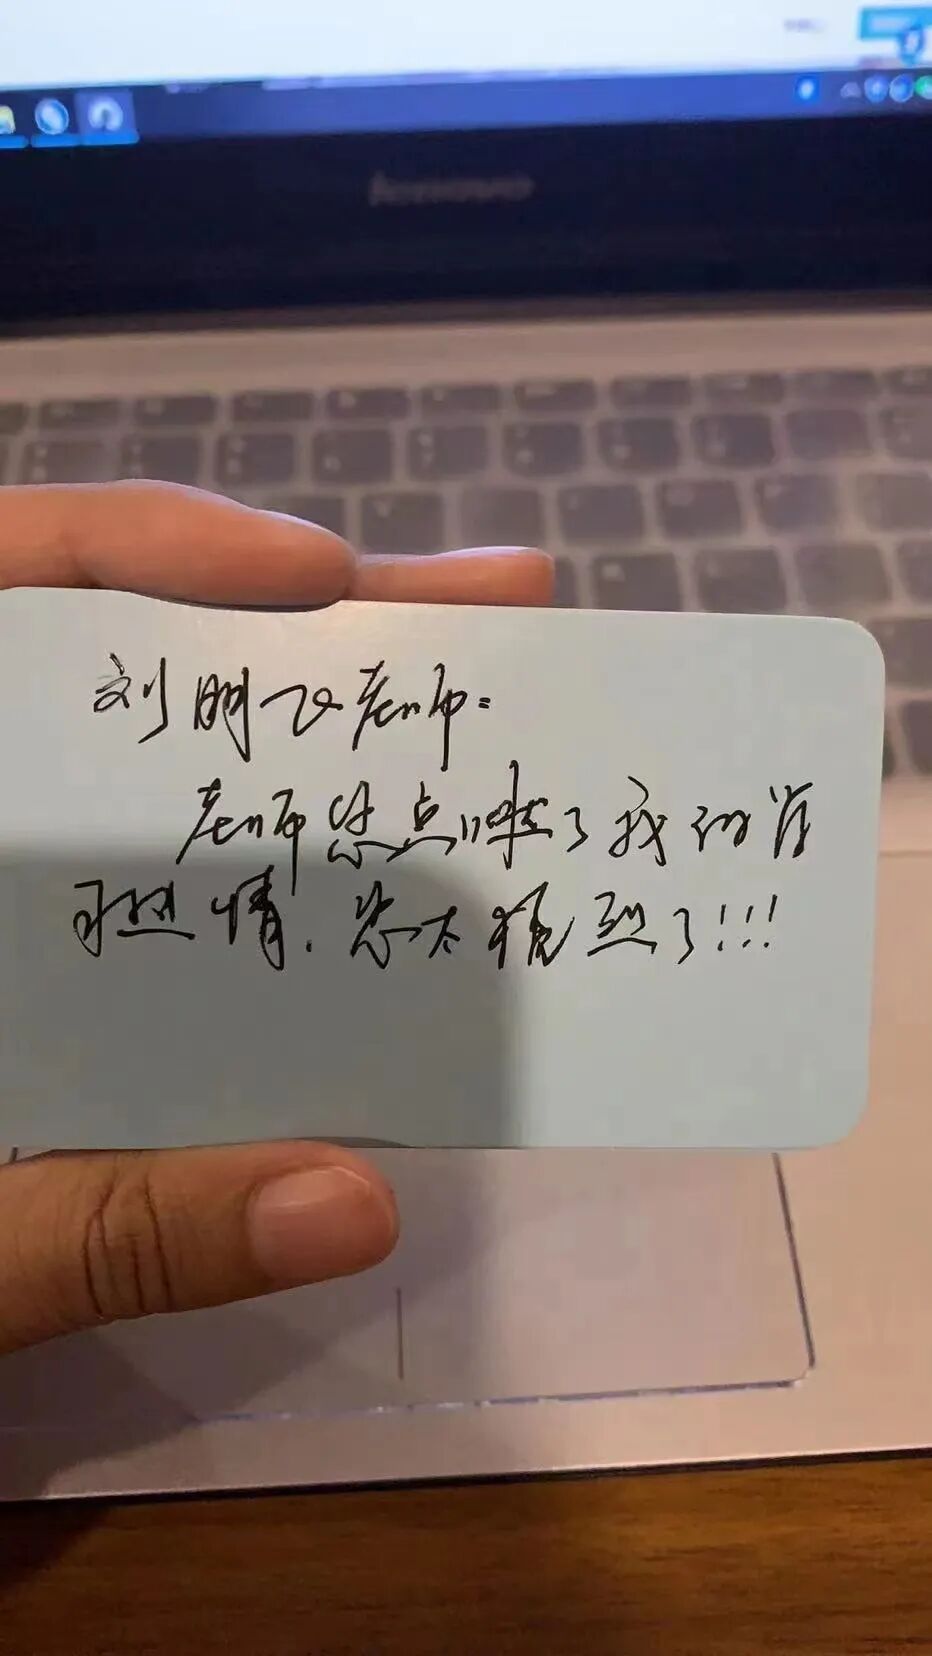 lenovo
刘明飞老师:
老师您点燃了我的学
习热情.您太猛烈了!!!